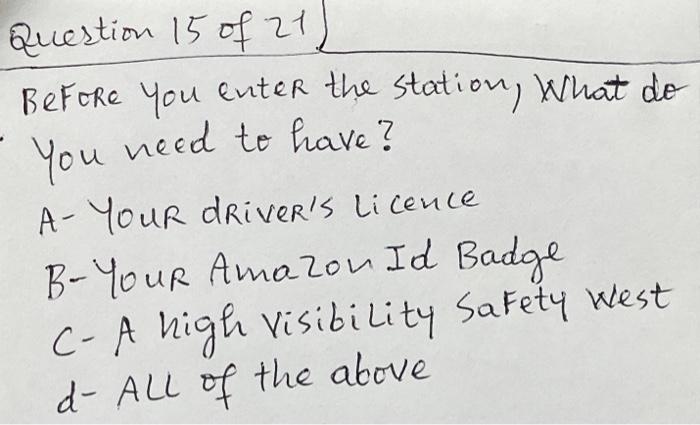 Question 15 of 21)
Before you enter the station, What do
you need to have?
A- Your driver's Licence
B- Your Amazon Id Badge
C- A high visibility Safety West
d- ALL of the above